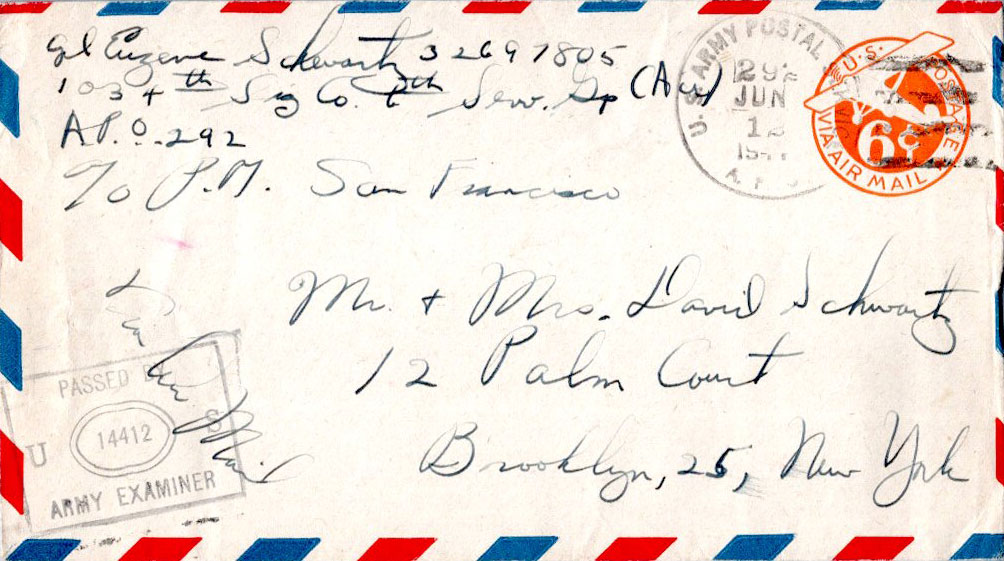 Eugene Schwartz 32697805
1034th Sig Co. 6th Serv. Gp (Avn)
A.P.O. 292
c/o P.M. San Francisco
U.S. ARMY POSTAL
292
JUN
12
194
A.P.O
U.S. POSTAGE
6¢
VIA AIR MAIL
Mr. + Mrs. David Schwartz
12 Palm Court
Brooklyn, 25, New York
Via Air Mail
PASSED
U 14412 S
ARMY EXAMINER